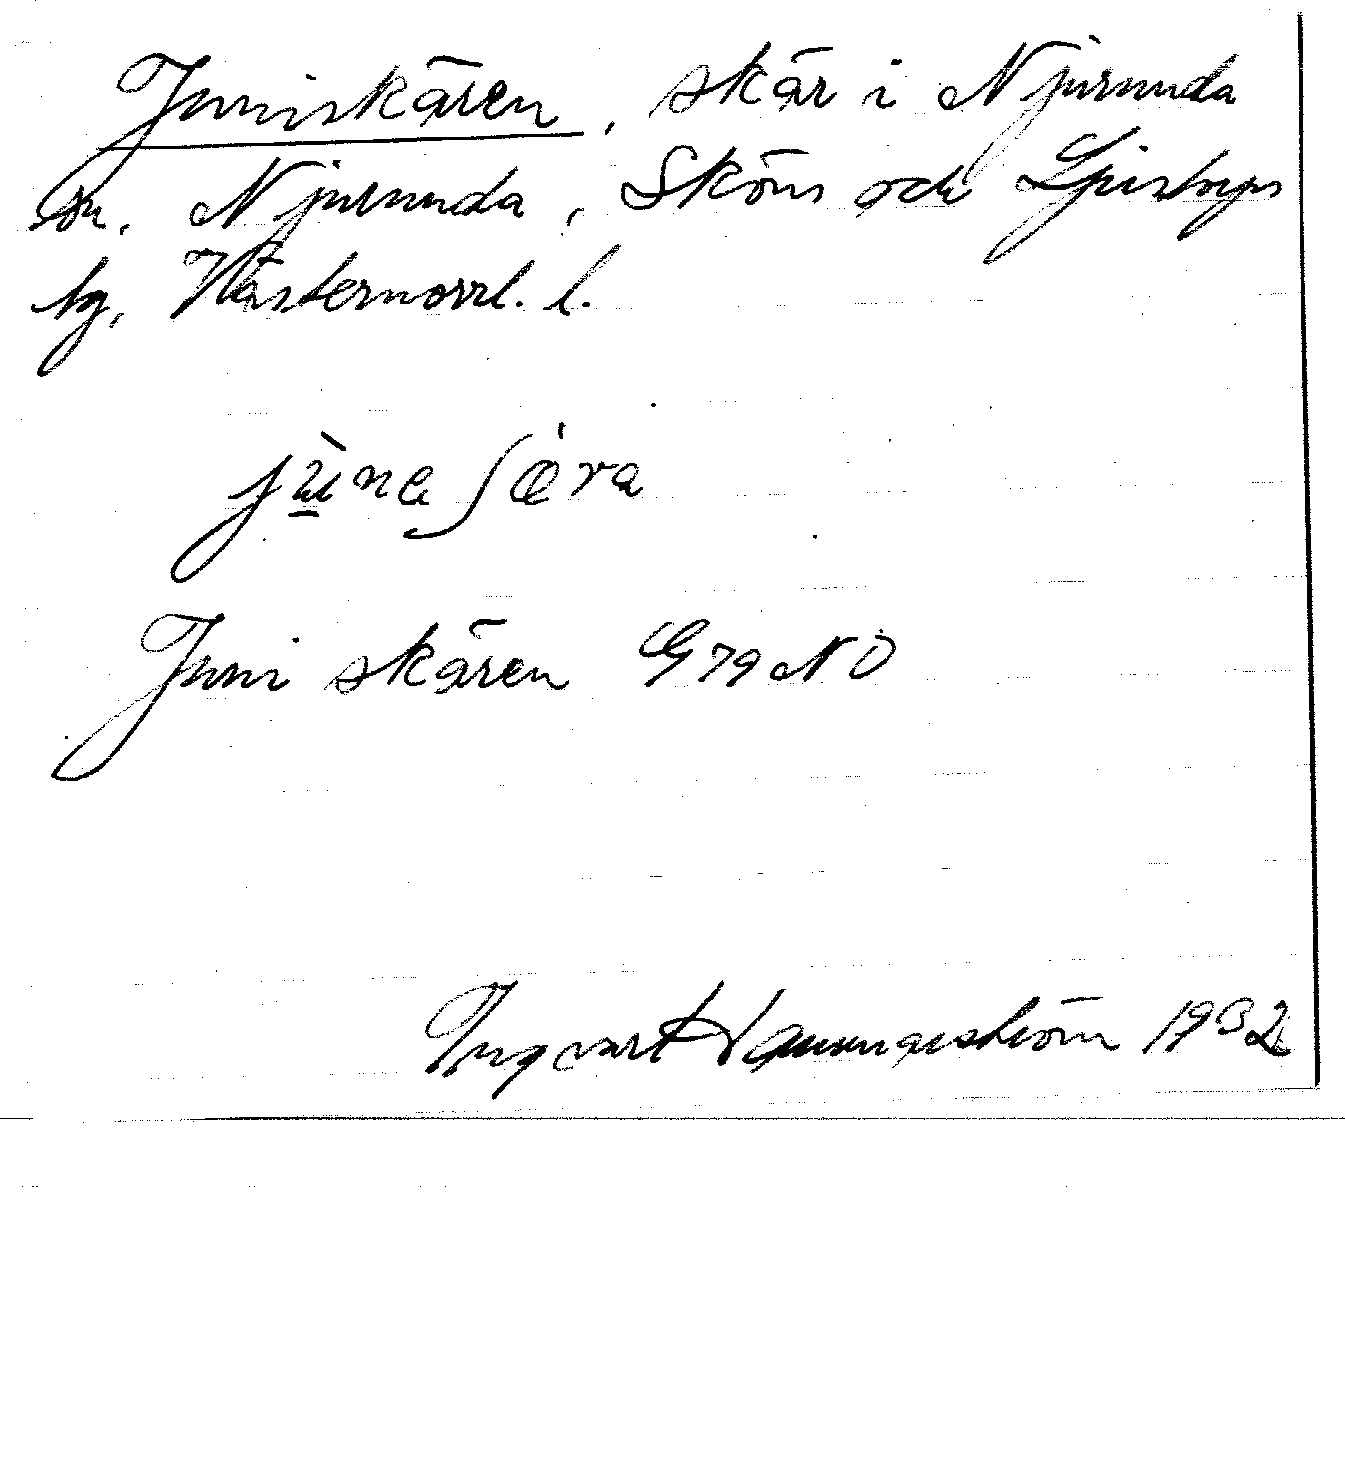 Juniskären, skär i Njurunda
sn, Njurunda, Sköns och Ljustorps
tg, Västernorrl. l.
jùna ʃæ̀ra
Juni skären G79NÖ
Ingvart Wennerström 1932